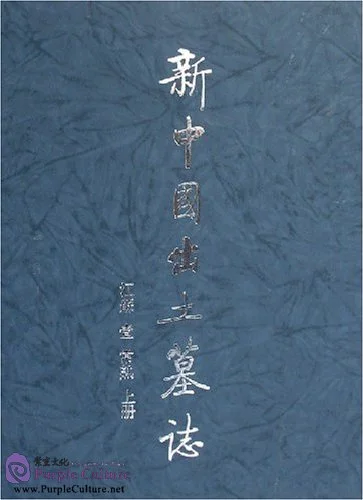 新中國出土墓誌
江蘇 壹 常熟 上册
紫室文化
Purple Culture
www.PurpleCulture.net